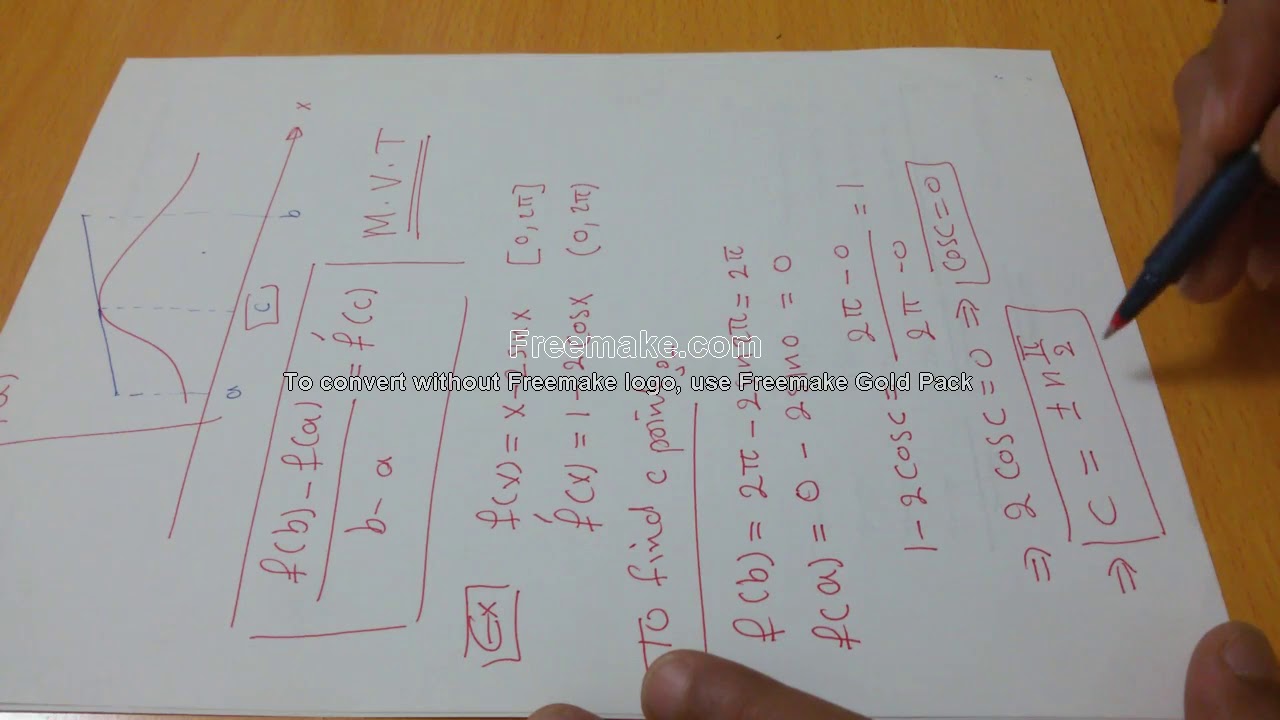 M.V.T
a
c
b
x
f(b) - f(a) / b - a = f'(c)
Ex f(x) = x - 2sin x [0, 2π]
f'(x) = 1 - 2cosx (0, 2π)
To find c point
f(b) = 2π - 2sin2π = 2π
f(a) = 0 - 2sin0 = 0
1 - 2cosc = 2π - 0 / 2π - 0 = 1
⇒ 2cosc = 0 ⇒ cosc = 0
⇒ c = ± n π/2
Freemake.com
To convert without Freemake logo, use Freemake Gold Pack